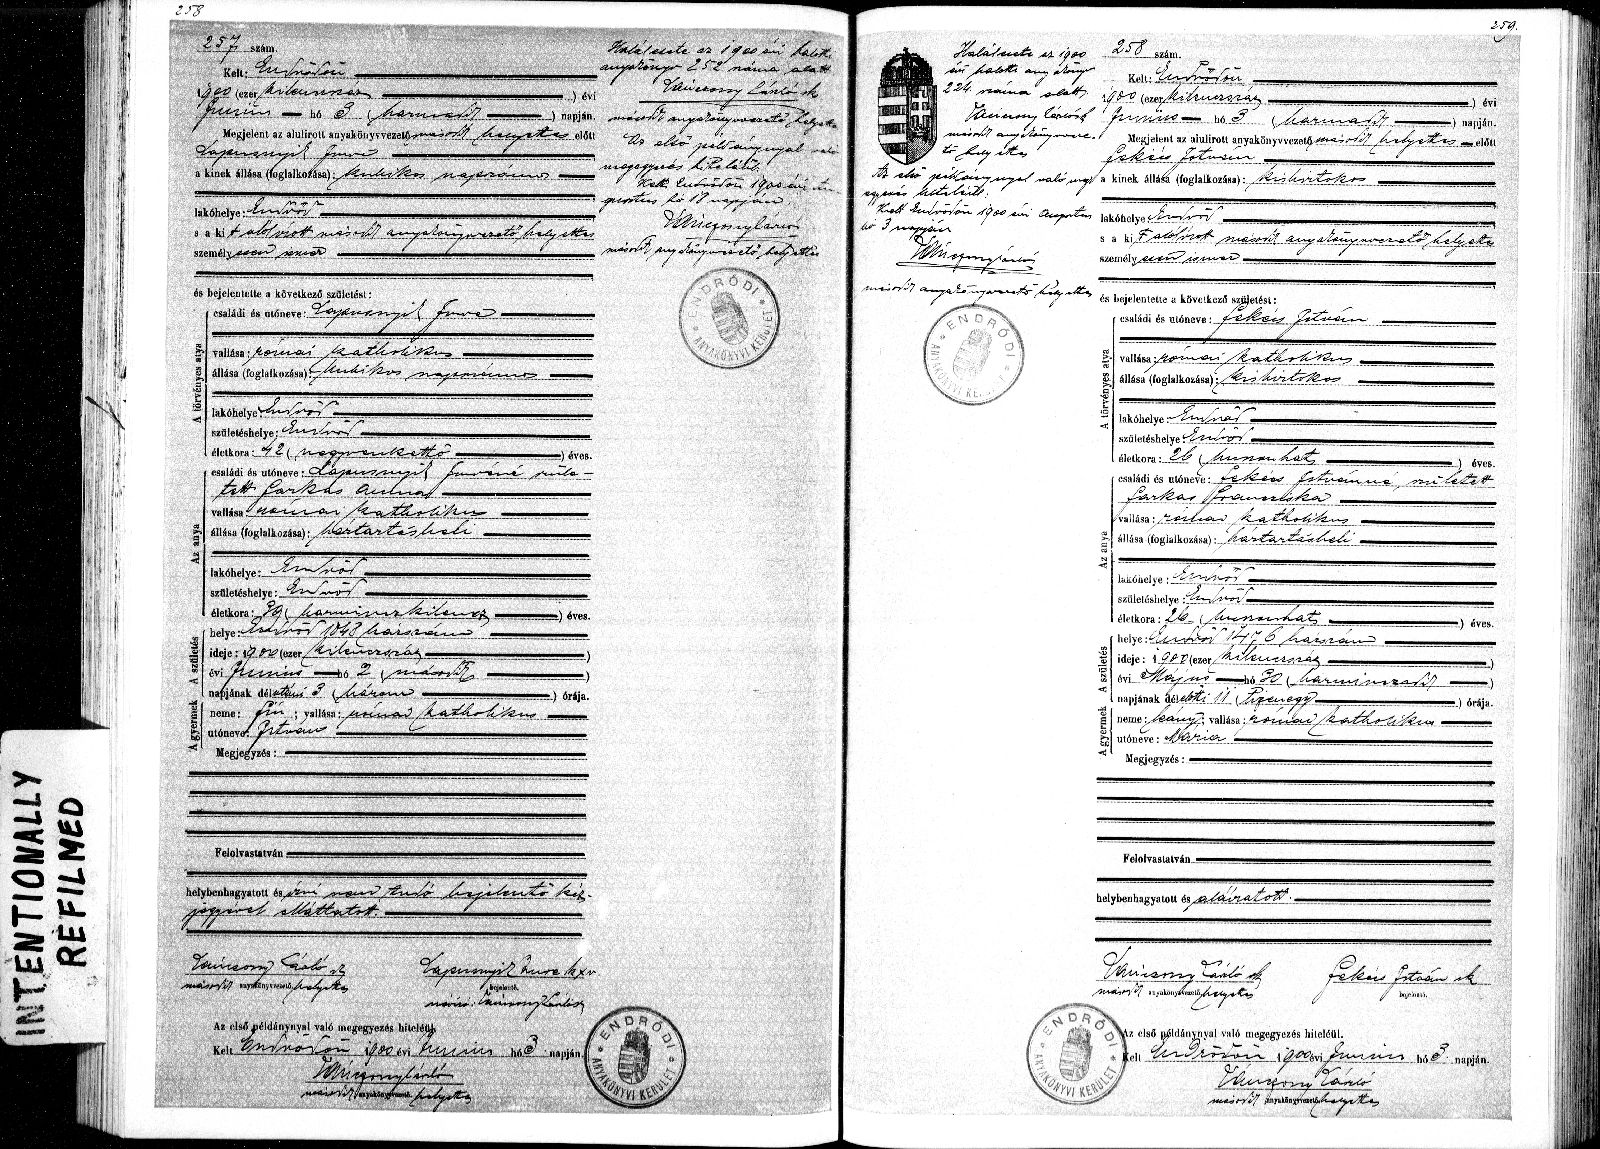 258
257 szám.
Kelt: Endrődön
1900 (ezer kilencszáz ) évi
Junius hó 3 ( harmadik ) napján.
Megjelent az alulirott anyakönyvvezető másodk helyettes előtt
Lapusnyik Imre
a kinek állása (foglalkozása): kubikos napszámos
lakóhelye: Endrőd
s a kit alólirott másodk anyakönyvvezető helyettes
személyesen ismer
és bejelentette a következő születést:
A törvényes atya
családi és utóneve: Lapusnyik Imre
vallása: római katholikus
állása (foglalkozása): kubikos napszámos
lakóhelye: Endrőd
születéshelye: Endrőd
életkora: 42 ( negyvenkettő ) éves.
Az anya
családi és utóneve: Lapusnyik Imréné szüle-
tett Farkas Anna
vallása: római katholikus
állása (foglalkozása): háztartásbeli
lakóhelye: Endrőd
születéshelye: Endrőd
életkora: 39 ( harminczkilencz ) éves.
A születés
helye: Endrőd 1048 házszám
ideje: 1900 (ezer kilencszáz )
évi Junius hó 2 ( másodk )
napjának délutáni 3 ( három ) órája.
A gyermek
neme: fiú; vallása: római katholikus
utóneve: István
Megjegyzés:
Felolvastatván
helybenhagyatott és irni nem tudó bejelentő kéz-
jegyével elláttatott.
Vánczony László sk
másodk anyakönyvvezető helyettes
Lapusnyik Imre kxv
bejelentő.
Az első példánynyal való megegyezés hiteléül.
Kelt Endrődön 1900 évi Junius hó 3 napján.
Vánczony László
másodk anyakönyvvezető helyettes
ENDRŐDI ANYAKÖNYVI KERÜLET
Halálesete az 1900 évi halotti
anyakönyv 252 száma alatt
Vánczony László sk
másodk anyakönyvvezető helyettes
Az első példánynyal való
megegyezés hiteléül.
Kelt Endrődön 1900 évi Au-
gusztus hó 18 napján.
Vánczony László
másodk anyakönyvvezető helyettes
ENDRŐDI ANYAKÖNYVI KERÜLET
INTENTIONALLY
REFILMED
259.
Halálesete az 1900
évi halotti anyakönyv
224 száma alatt.
Vánczony László sk
másodk anyakönyvveze-
tő helyettes
Az első példánynyal való meg-
egyezés hiteléül.
Kelt Endrődön 1900 évi Augusztus
hó 3 napján
Vánczony László
másodk anyakönyvvezető helyettes
ENDRŐDI ANYAKÖNYVI KERÜLET
258 szám.
Kelt: Endrődön
1900 (ezer kilencszáz ) évi
Junius hó 3 ( harmadik ) napján.
Megjelent az alulirott anyakönyvvezető másodk helyettes előtt
Fekécs István
a kinek állása (foglalkozása): kisbirtokos
lakóhelye Endrőd
s a kit alólirott másodk anyakönyvvezető helyettes
személyesen ismer
és bejelentette a következő születést:
A törvényes atya
családi és utóneve: Fekécs István
vallása: római katholikus
állása (foglalkozása): kisbirtokos
lakóhelye: Endrőd
születéshelye: Endrőd
életkora: 26 ( huszonhat ) éves.
Az anya
családi és utóneve: Fekécs Istvánné, született
Farkas Franciska
vallása: római katholikus
állása (foglalkozása): háztartásbeli
lakóhelye: Endrőd
születéshelye: Endrőd
életkora: 26 ( huszonhat ) éves.
A születés
helye: Endrőd 1476 házszám
ideje: 1900 (ezer kilencszáz )
évi Május hó 30 ( harminczadik )
napjának délelőtti 11 ( tizenegy ) órája.
A gyermek
neme: leány; vallása: római katholikus
utóneve: Mária
Megjegyzés:
Felolvastatván
helybenhagyatott és aláiratott.
Vánczony László sk
másodk anyakönyvvezető helyettes
Fekécs István sk
bejelentő.
Az első példánynyal való megegyezés hiteléül.
Kelt Endrődön 1900 évi Junius hó 3. napján.
Vánczony László
másodk anyakönyvvezető helyettes
ENDRŐDI ANYAKÖNYVI KERÜLET